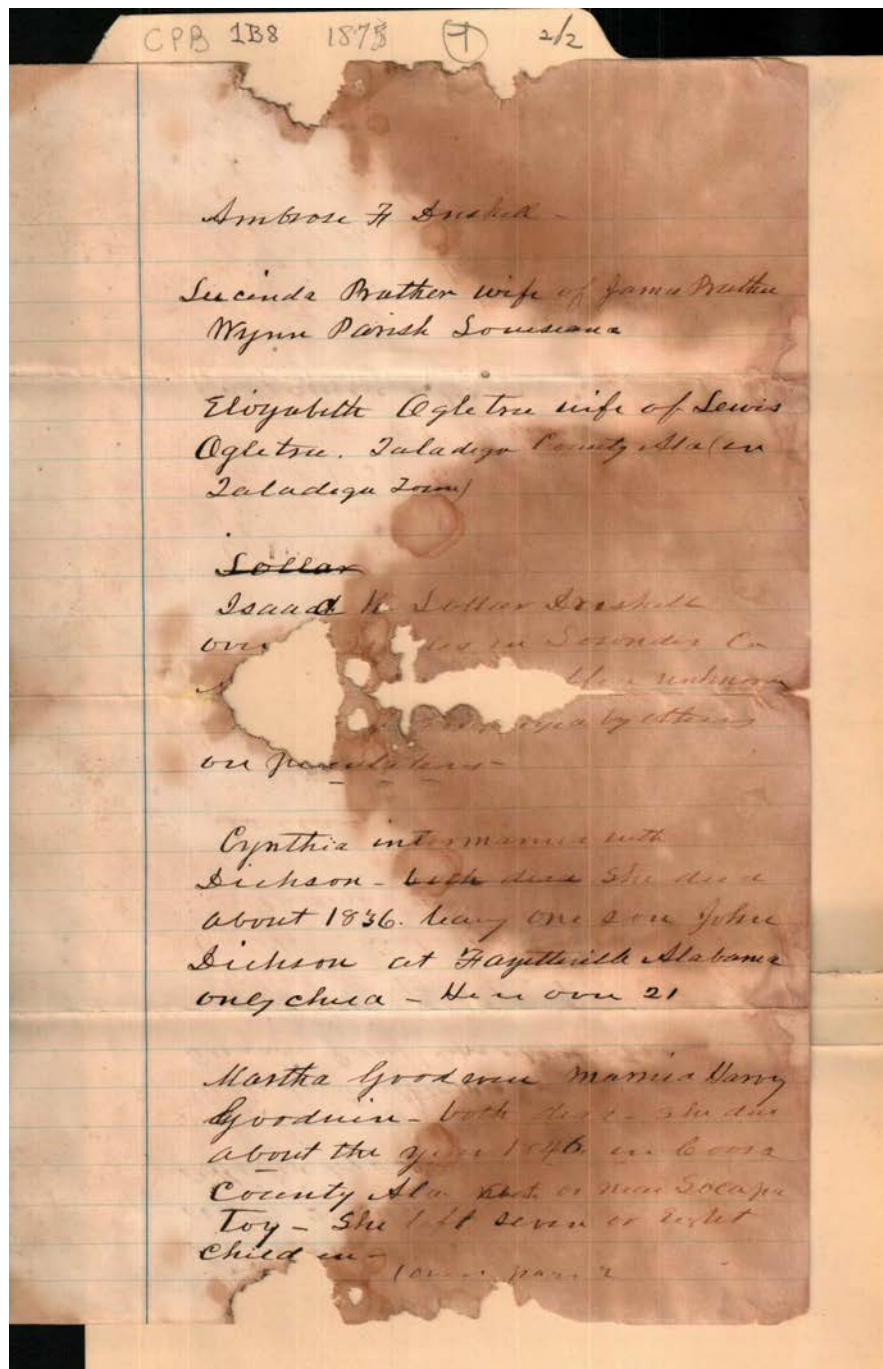 CPB 1B8 1875 1 2/2
Ambrose F Driskell -
Lucinda Prather wife of James Prather
Wynn Parish Louisiana
Elizabeth Ogletree wife of Lewis
Ogletree. Taladega County Ala (in
Taladega Town)
Lollar
Isaac H. Lollar Driskell
over in Co
unknown
by others
on
Cynthia intermarried with
Dickson - both dead She died
about 1836. leaving one son John
Dickson at Fayetteville Alabama
only child - He is over 21
Martha Goodwin married Harvy
Goodwin - both dead - She died
about the year 1846 in Coosa
County Ala or near Socapa
Toy - She left seven or eight
children -
(over